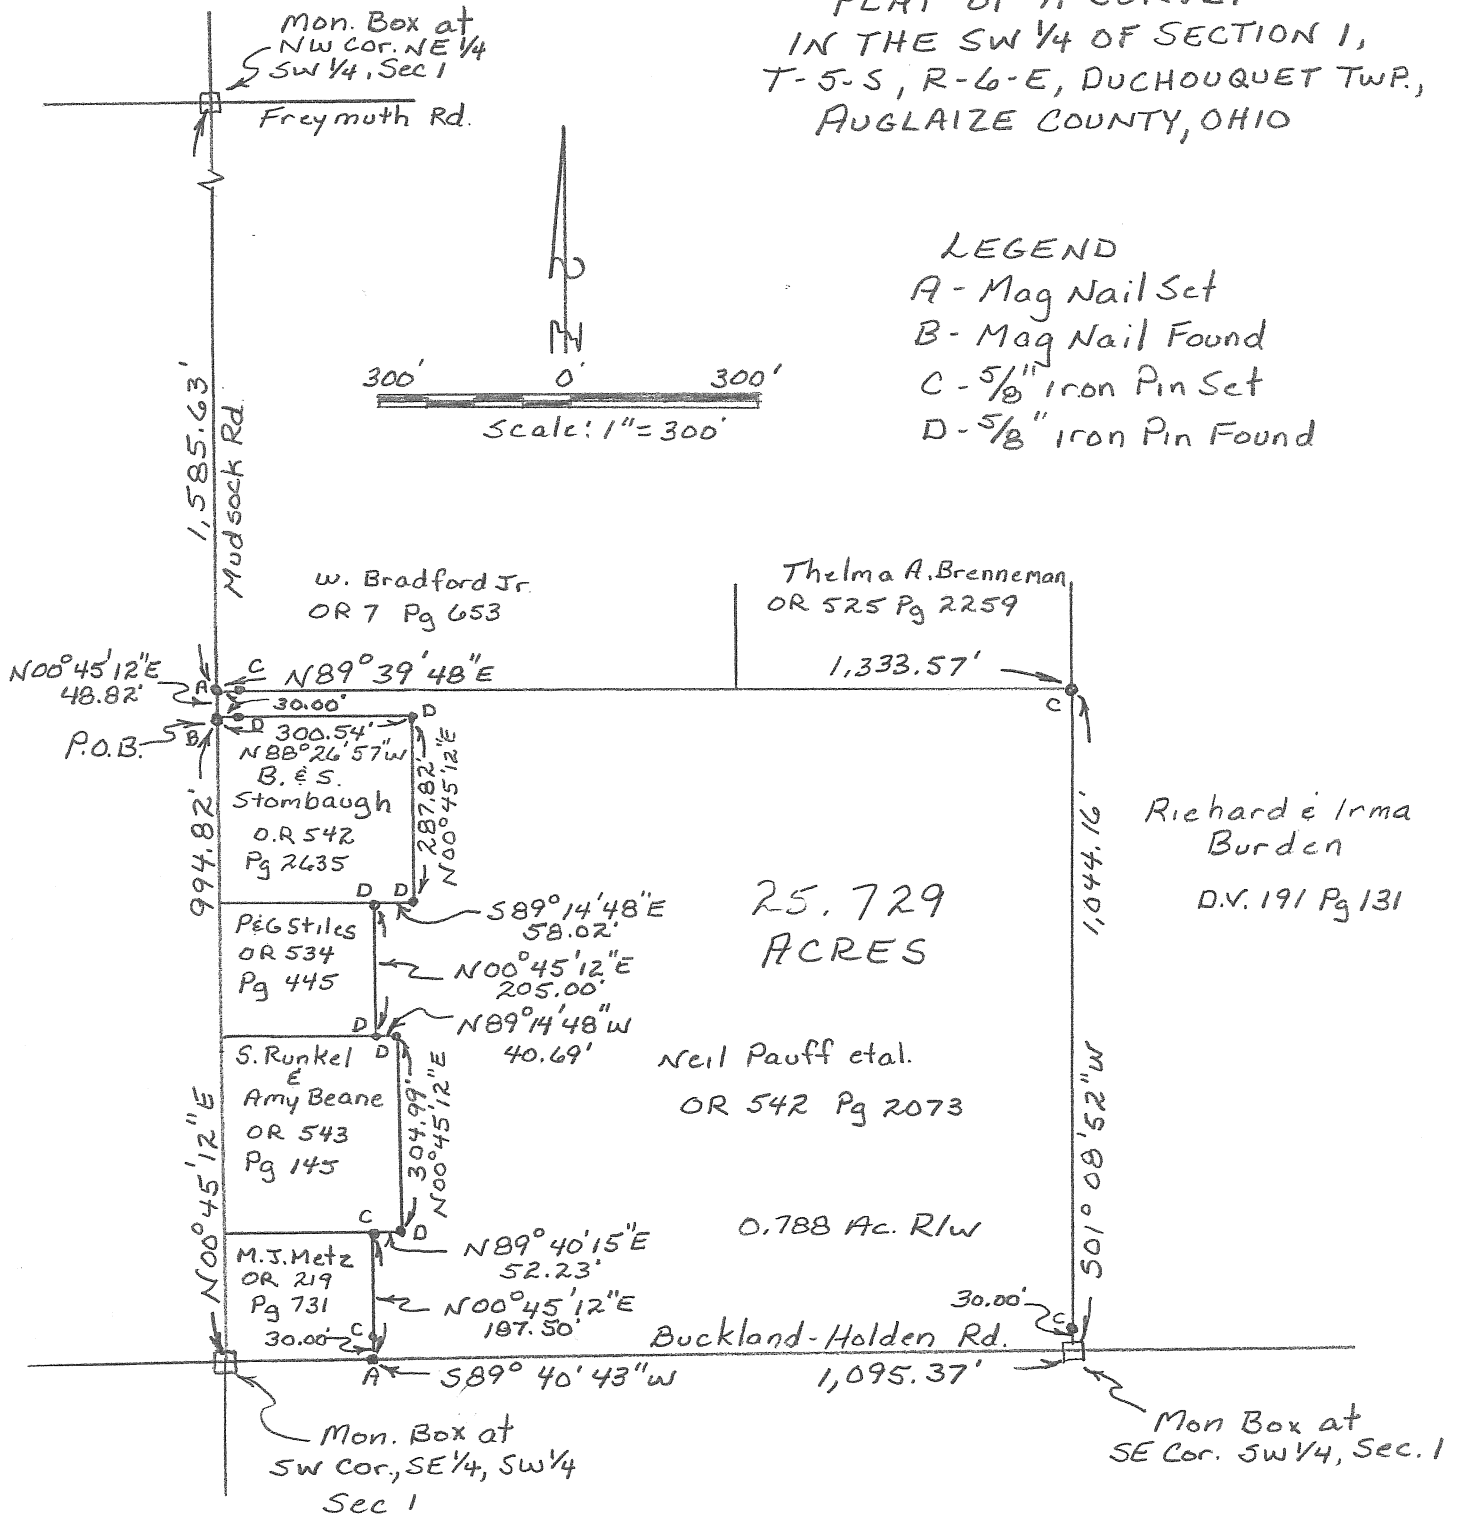 PLAT OF A SURVEY
IN THE SW 1/4 OF SECTION 1,
T-5-S, R-6-E, DUCHOUQUET TWP.,
AUGLAIZE COUNTY, OHIO
Mon. Box at
NW Cor. NE 1/4
SW 1/4, Sec 1
Freymuth Rd.
N
300' 0' 300'
Scale: 1"=300'
LEGEND
A - Mag Nail Set
B - Mag Nail Found
C - 5/8" iron Pin Set
D - 5/8" iron Pin Found
1,585.63'
Mudsock Rd
W. Bradford Jr.
OR 7 Pg 653
Thelma A. Brenneman
OR 525 Pg 2259
N00°45'12"E
48.82'
A
C
N89°39'48"E
1,333.57'
C
30.00'
P.O.B.
B
D
300.54'
D
N88°26'57"W
B. & S.
Stombaugh
O.R 542
Pg 2635
287.82'
N00°45'12"E
994.82'
N00°45'12"E
D D
S89°14'48"E
58.02'
P&G Stiles
OR 534
Pg 445
N00°45'12"E
205.00'
D
D
N89°14'48"W
40.69'
S. Runkel
&
Amy Beane
OR 543
Pg 145
304.99'
N00°45'12"E
25.729
ACRES
Neil Pauff etal.
OR 542 Pg 2073
0.788 Ac. R/W
1,044.16'
S01°08'52"W
Richard & Irma
Burden
D.V. 191 Pg 131
C
D
N89°40'15"E
52.23'
M.J. Metz
OR 219
Pg 731
N00°45'12"E
187.50'
30.00'
C
30.00'
C
Buckland-Holden Rd.
A
S89°40'43"W
1,095.37'
Mon. Box at
SW Cor., SE 1/4, SW 1/4
Sec 1
Mon Box at
SE Cor. SW 1/4, Sec. 1